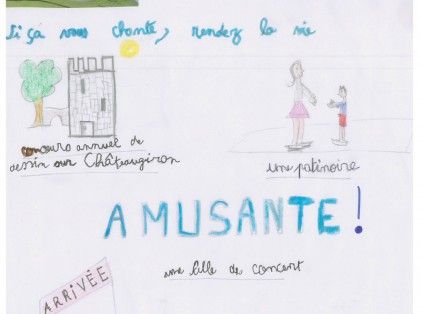 Si ça vous chante, rendez la vie
concours annuel de
dessin sur Châteaugiron
une patinoire
AMUSANTE !
une salle de concert
ARRIVÉE